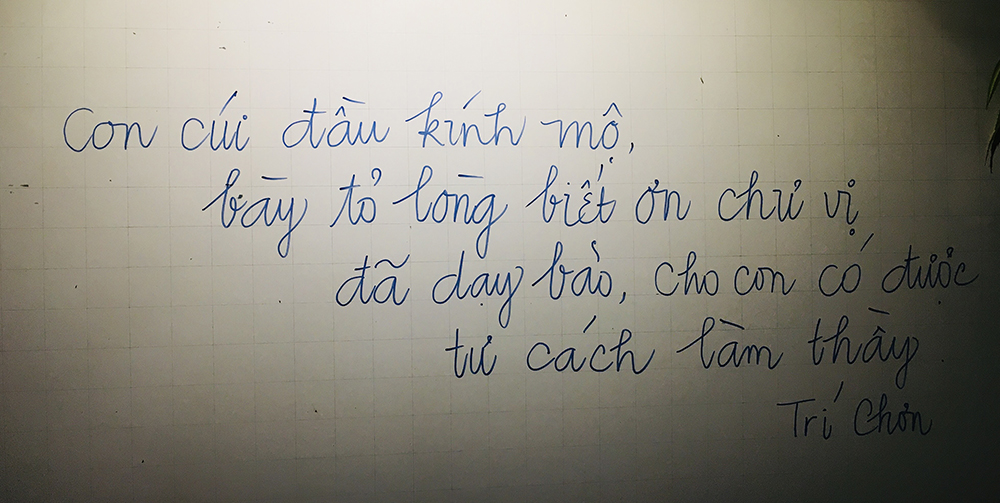 Con cúi đầu kính mộ,
bày tỏ lòng biết ơn chư vị
đã dạy bảo, cho con có được
tư cách làm thầy
Trí Chơn